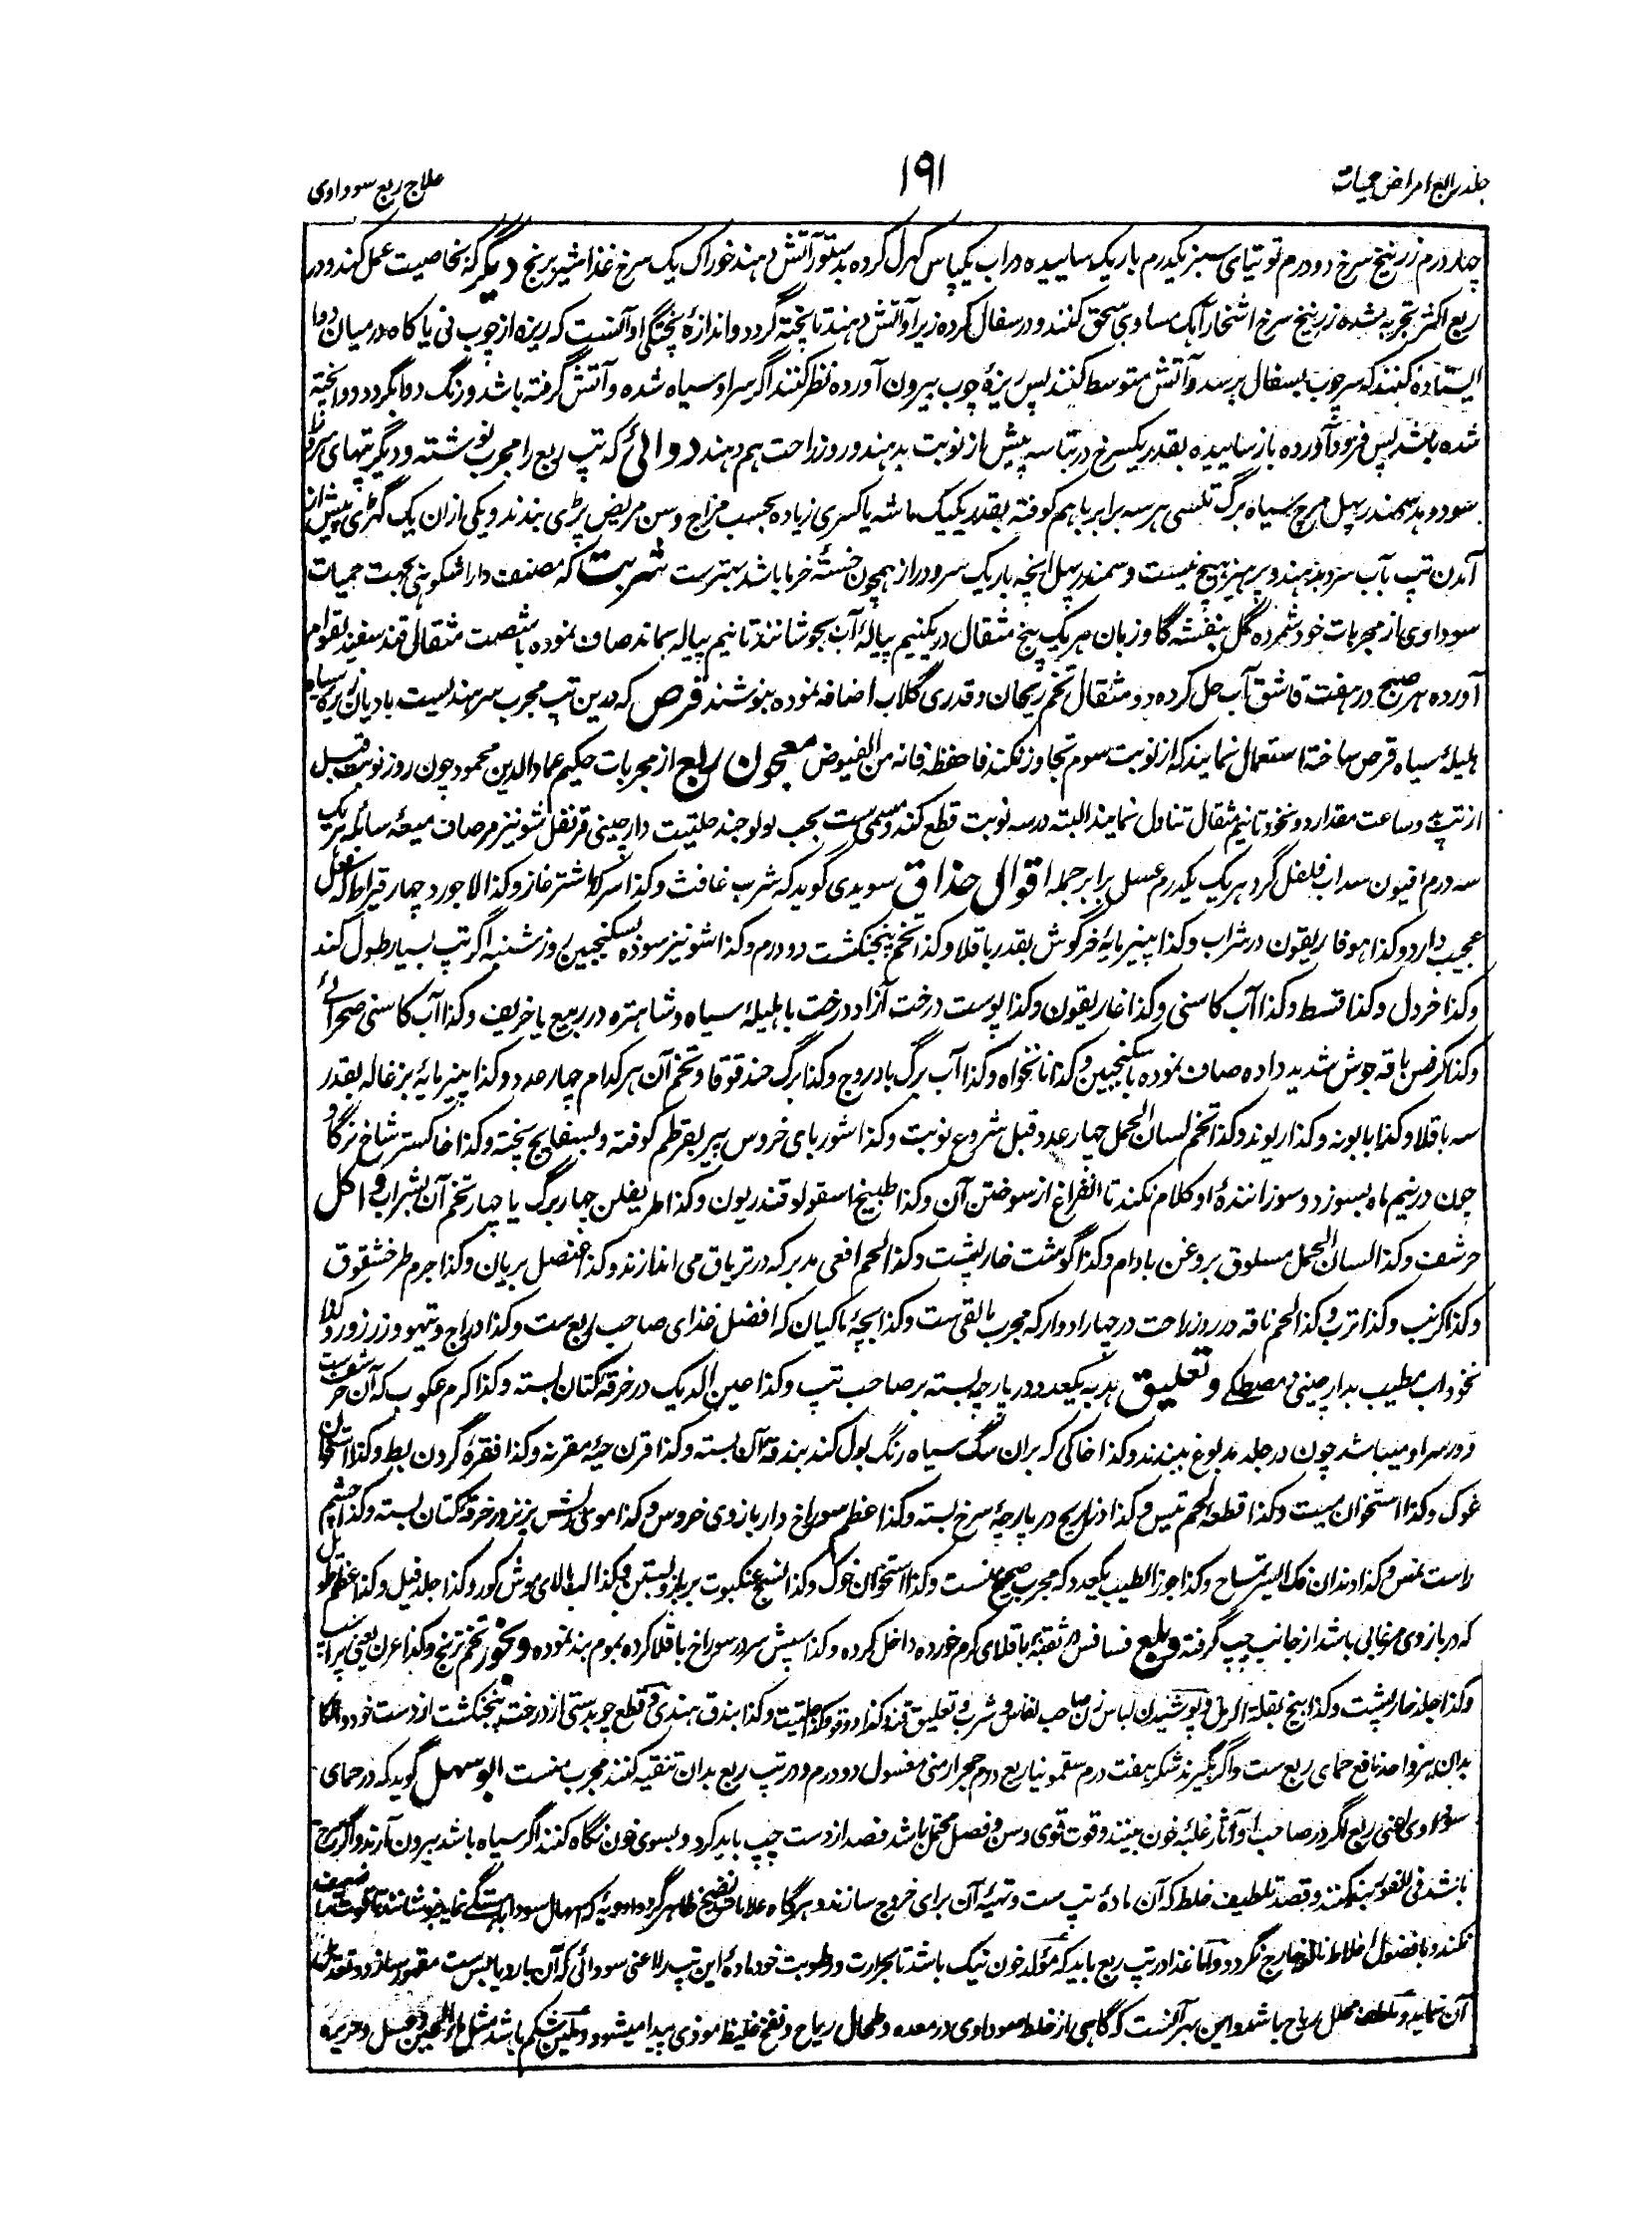 جلد رابع امراض حمیات
۱۹۱
علاج ربع سوداوی
چہار درم زرنیخ سرخ دو درم توتیای سبز یکدرم باریک ساییده در اب یکپاس کهرل کرده بدستور آتش دهند خوراک یک سرخ غذا شیر برنج دیگر که بخاصیت عمل کند و در
ربع اکثر تجربه شده زرنیخ سرخ اشخار آہک مساوی سحق کنند و در سفال کرده زیر او آتش دهند تا پخته گردد و اندازهٔ پختگی او آنست که ریزه از چوب نی یا کاه در میان دوا
ایستاده کنند که سر چوب بسفال برسد و آتش متوسط کنند پس ریزهٔ چوب بیرون آورده نظر کنند اگر سر او سیاه شده و آتش گرفته باشد و رنگ دوا بگردد دوا پخته
شده باشد پس فرود آورده باز ساییده بقدر یکسرخ در بتاسه پیش از نوبت بدهند و روز راحت هم دهند دوائی که تپ ربع را مجرب نوشته و دیگر تپهای
سود دهد سمندر پهل مرچ سیاه برگ تلسی هر سه برابر باهم کوفته بقدر یکیک ماشه یا کسری زیاده بحسب مزاج و سن مریض پڑی بندند و یکی ازان یک گهڑی پیش از
آمدن تپ بآب سرد بدهند و پرهیز هیچ نیست و سمندر پهل آنچه باریک سر و دراز همچون خستهٔ خرما باشد بهتر ست شربت که مصنف دارا شکوهی بجهت حمیات
سوداوی از مجربات خود شمرده گل بنفشه گاوزبان هریک پنج مثقال در یکنیم پیالهٔ آب بجوشانند تا نیم پیاله بماند صاف نموده با شصت مثقال قند سفید بقوام
آورده هر صبح در هفت قاشق آب حل کرده دو مثقال تخم ریحان و قدری گلاب اضافه نموده بنوشند قرص که درین تپ مجرب سرهندیست بادیان زیره سیاه
هلیلهٔ سیاه قرص ساخته استعمال نمایند که از نوبت سوم تجاوز نکند فاحفظه فانه من الفیوض معجون ربع از مجربات حکیم عماد الدین محمود چون روز نوبت قبل
از تپ دو ساعت مقدار دو نخود تا نیم مثقال تناول نمایند البته در سه نوبت قطع کند و مسمی ست بحب لولو جند حلتیت دارچینی قرنفل شونیز مر صاف میعهٔ سائله هریک
سه درم افیون سداب فلفل گرد هریک یکدرم عسل برابر جمله اقوال حذاق سویدی گوید که شرب غافث و کذا سرکهٔ اشترغاز و کذا لاجورد چهار قیراط که فعل
عجیب دارد و کذا هوفاریقون در شراب و کذا پنیر مایهٔ خرگوش بقدر باقلا و کذا تخم پنجنکشت دو درم و کذا شونیز سوده بسکنجبین روز شنبه اگر تپ بسیار طول کند
و کذا خردل و کذا قسط و کذا آب کاسنی و کذا غاریقون و کذا پوست درخت آزاد درخت با هلیلهٔ سیاه و شاهتره در ربیع یا خریف و کذا آب کاسنی صحرائی
و کذا کرفس باقه جوش شدید داده صاف نموده با سکنجبین و کذا نانخواه و کذا آب برگ بادروج و کذا برگ حندقوقا و تخم آن هر کدام چهار عدد و کذا پنیر مایهٔ بزغاله بقدر
سه باقلا و کذا بابونه و کذا ریوند و کذا تخم لسان الحمل چهار عدد قبل شروع نوبت و کذا شوربای خروس پیر بقرطم کوفته و بسفایج پخته و کذا خاکستر شاخ نر گاو
چون در نیم ماه بسوزد و سوزانندهٔ او کلام نکند تا انفراغ از سوختن آن و کذا طبیخ اسقولوقندریون و کذا طریفلن چهار برگ یا چهار تخم آن بشراب و اکل
حرشف و کذا لسان الحمل مسلوق بروغن بادام و کذا گوشت خارپشت و کذا لحم افعی مدبر که در تریاق می اندازند و کذا عنصل بریان و کذا جرم طرخشقوق
و کذا کرنب و کذا ترب و کذا لحم ناقه در روز راحت در چهار ادوار که مجرب بالقی ست و کذا بچهٔ ماکیان که افضل غذای صاحب ربع ست و کذا دراج و تیهو و زرزور و کذا
نخوداب مطیب بدارچینی و مصطکے و تعلیق هدبه یکعدد در پارچه بسته بر صاحب تپ و کذا عین الدیک در خرقهٔ کتان بسته و کذا کرم عکوب که آن حرشف ست
و در سر او میباشد چون در جلد مدبوغ ببندند و کذا خاکی که بران سگ سیاه رنگ بول کند بندقهٔ آن بسته و کذا قرن حیهٔ مقرنه و کذا فقرهٔ گردن بط و کذا استخوان
غوک و کذا استخوان میت و کذا قطعه لحم تیس و کذا ذراریح در پارچهٔ سرخ بسته و کذا عظم سوراخ دار بازوی خروس و کذا موی ریش بز نر در خرقهٔ کتان بسته و کذا چشم
راست نمس و کذا دندان فک ایسر تمساح و کذا جوز الطیب یکعدد که مجرب صحیح ست و کذا استخوان خوک و کذا نسج عنکبوت بر بازو بستن و کذا لب بالای موش کور و کذا جلد فیل و کذا عظم
که در بازوی مرغابی باشد از جانب چپ گرفته و بلع فسافس در ثقبهٔ باقلای کرم خورده داخل کرده و کذا سپش سر در سوراخ باقلا کرده بموم بند نموده و بخور تخم ترنج و کذا عرن یعنی
و کذا جلد خارپشت و کذا بیخ بقلة الرمل و پوشیدن لباس زن صاحب نفاس و شرب و تعلیق قند و کذا دوقو و کذا حلتیت و کذا بندق هندی و قطع چوبدستی از درخت پنجنکشت از دست خود و
بدان هر واحد نافع حمای ربع ست و اگر بگیرند شکر هفت درم سقمونیا ربع درم حجر ارمنی مغسول دو درم و در تپ ربع بدان تنقیه کنند مجرب منست ابو سهل گوید که در حمای
سوداوی اعنی ربع اگر در صاحب او آثار غلبهٔ خون بینند و قوت قوی و سن و فصل محتمل باشد فصد از دست چپ باید کرد و بسوی خون نگاه کنند اگر سیاه باشد بیرون آرند و اگر سرخ
باشد فی الفور بند کنند و قصد تلطیف خلط که آن مادهٔ تپ ست و تهیهٔ آن برای خروج سازند و هرگاه علامات نضج ظاهر گردد ادویهٔ که اسهال سودا بآهستگی نماید بنوشانند تا قوت ضعیف
نکند و با فضول اخلاط خارج نگردد و اما غذا در تپ ربع باید که مولد خون نیک باشد تا بحرارت و رطوبت خود مادهٔ این تپ را اعنی سودائی که آن بارد یابس ست مقهور سازد و تعدیل
آن نماید و محلل ریاح باشد و این بهر آنست که گاهی از خلط سوداوی در معده و طحال ریاح و نفخ غلیظ موذی پیدا میشود و ملین شکم باشد مثل و عسل و حریره